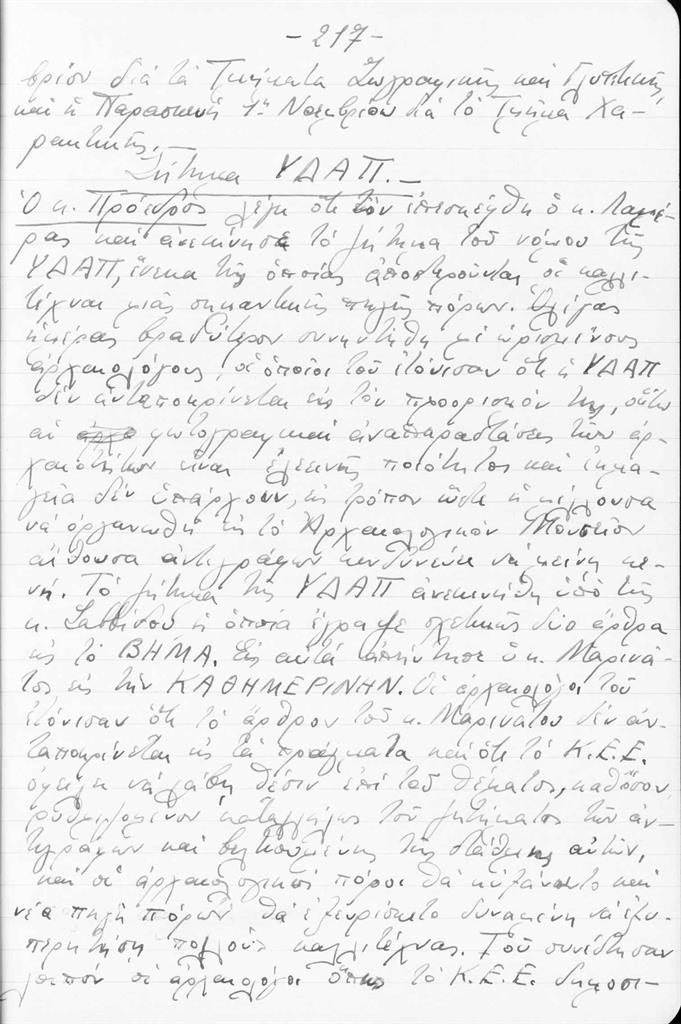 - 217 -
βρίου διά τά Τμήματα Ζωγραφικῆς καί Γλυπτικῆς,
καί ἡ Παρασκευή 1η Νοεμβρίου διά τό Τμῆμα Χα-
ρακτικῆς.-
Ζήτημα ΥΔΑΠ.-
Ὁ κ. Πρόεδρος λέγει ὅτι τόν ἐπεσκέφθη ὁ κ. Λαμέ-
ρας καί ἀνεκίνησε τό ζήτημα τοῦ νόμου τῆς
ΥΔΑΠ, ἕνεκα τῆς ὁποίας ἀποστεροῦνται οἱ καλλι-
τέχναι μιᾶς σημαντικῆς πηγῆς πόρων. Ὀλίγας
ἡμέρας βραδύτερον συνηντήθη μέ ὡρισμένους
ἀρχαιολόγους, οἱ ὁποῖοι τοῦ ἐτόνισαν ὅτι ἡ ΥΔΑΠ
δέν ἀνταποκρίνεται εἰς τόν προορισμόν της, οὕτω
αἱ φωτογραφικαί ἀναπαραστάσεις τῶν ἀρ-
χαιοτήτων εἶναι ἐλεεινῆς ποιότητος καί ἐκμα-
γεῖα δέν ὑπάρχουν, εἰς τρόπον ὥστε ἡ μέλλουσα
νά ὀργανωθῆ εἰς τό Ἀρχαιολογικόν Μουσεῖον
αἴθουσα ἀντιγράφων κινδυνεύει νά μείνη κε-
νή. Τό ζήτημα τῆς ΥΔΑΠ ἀνεκινήθη ὑπό τῆς
κ. Σαββίδου ἡ ὁποία ἔγραψε σχετικῶς δύο ἄρθρα
εἰς τό ΒΗΜΑ. Εἰς αὐτά ἀπήντησε ὁ κ. Μαρινᾶ-
τος εἰς τήν ΚΑΘΗΜΕΡΙΝΗΝ. Οἱ ἀρχαιολόγοι τοῦ
ἐτόνισαν ὅτι τό ἄρθρον τοῦ κ. Μαρινάτου δέν ἀν-
ταποκρίνεται εἰς τά πράγματα καί ὅτι τό Κ.Ε.Ε.
ὀφείλει νά λάβη θέσιν ἐπί τοῦ θέματος, καθ' ὅσον,
ρυθμιζομένου καταλλήλως τοῦ ζητήματος τῶν ἀν-
τιγράφων καί βελτιουμένης τῆς στάθμης αὐτῶν,
καί οἱ ἀρχαιολογικοί πόροι θά ηὐξάνοντο καί
νέα πηγή πόρων θά ἐξευρίσκετο δυναμένη νά ἐξυ-
πηρετήση πολλούς καλλιτέχνας. Τοῦ συνέστησαν
λοιπόν οἱ ἀρχαιολόγοι ὅπως τό Κ.Ε.Ε. δημοσι-